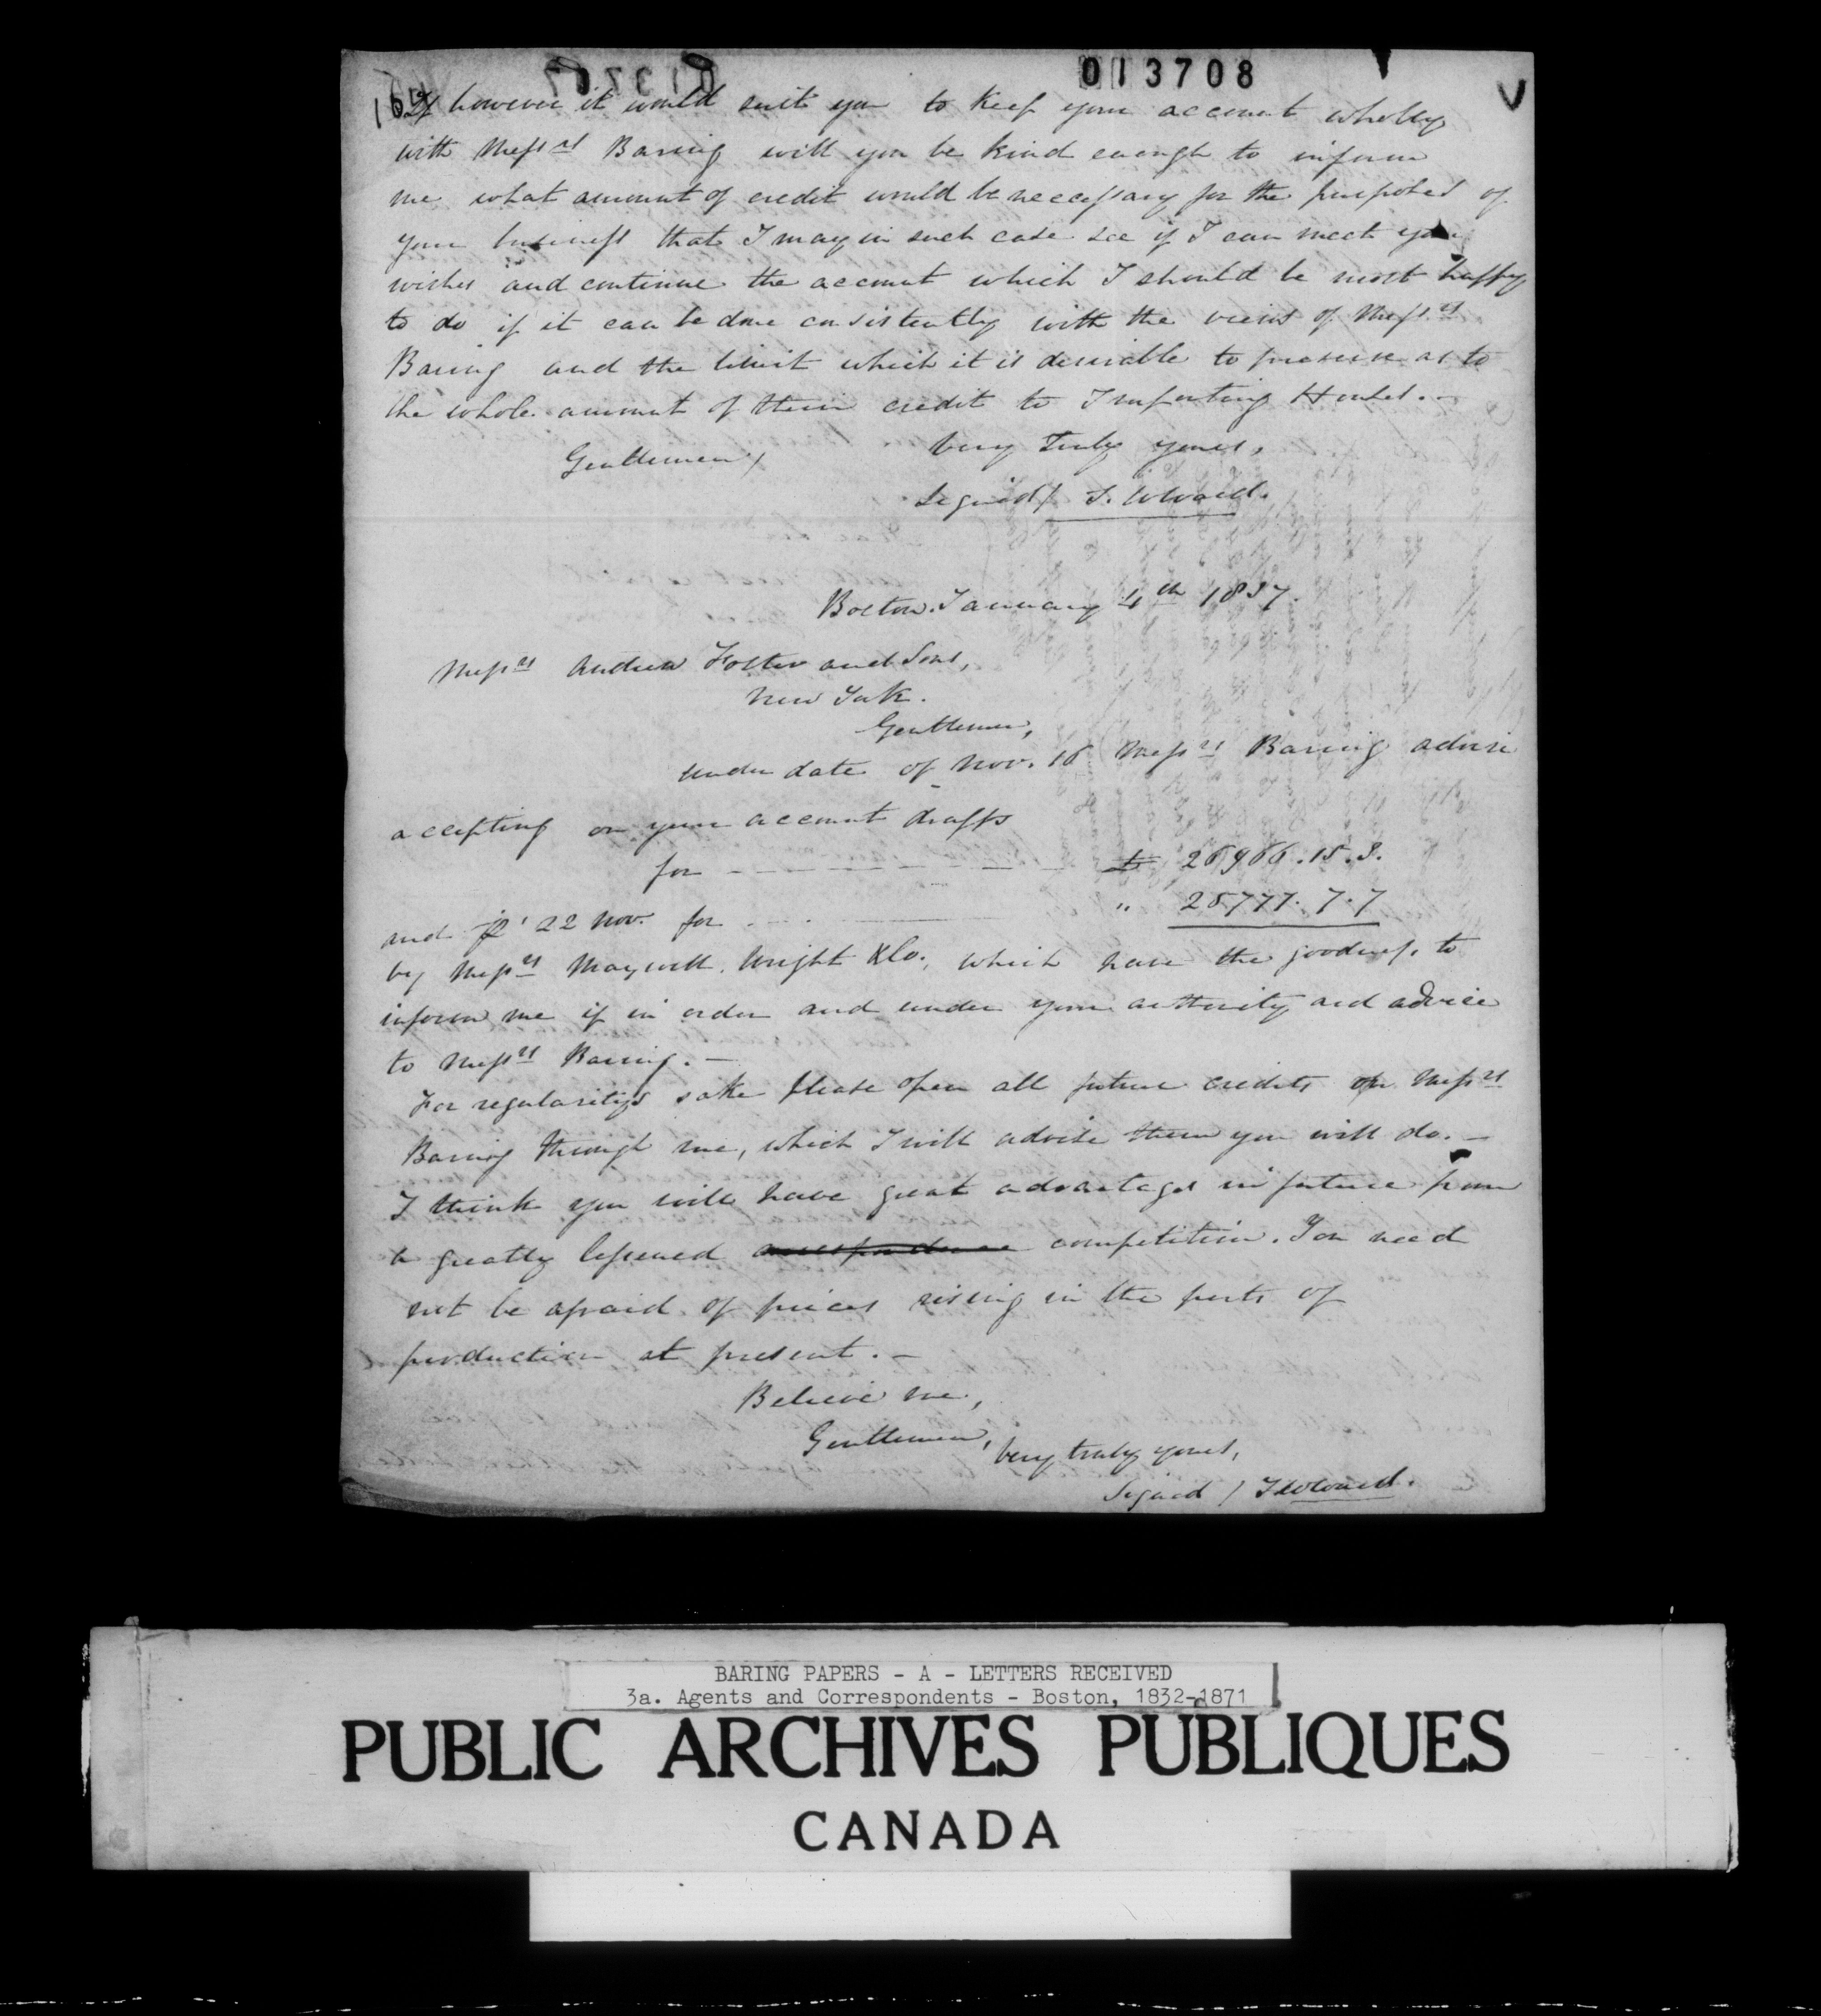 013708
If however it would suit you to keep your account wholly
with Messrs Baring will you be kind enough to inform
me what amount of credit would be necessary for the purposes of
your business that I may in such case see if I can meet your
wishes and continue the account which I should be most happy
to do if it can be done consistently with the views of Messrs
Baring and the limit which it is desirable to preserve as to
the whole amount of their credit to Importing Houses.-
Gentlemen, Very Truly yours,
Signed/ T. W Ward.
Boston. January 4th 1837.
Messrs Andrew Foster and Sons,
New York.
Gentlemen,
Under date of Nov. 16 Messrs Baring advise
accepting on your account drafts
for - - - - - - £ 26966.15.3.
and 22 Nov. for - - - " 25777.7.7
by Messrs Maxwell, Wright &Co., which have the goodness to
inform me if in order and under your authority and advice
to Messrs Baring.-
For regularitys sake please open all future credits on Messrs
Baring through me, which I will advise them you will do.-
I think you will have great advantages in future from
a greatly lessened correspondence competition. You need
not be afraid of prices rising in the ports of
production at present.-
Believe me,
Gentlemen,
Very truly yours,
Signed / T W Ward.
BARING PAPERS - A - LETTERS RECEIVED
3a. Agents and Correspondents - Boston, 1832-1871
PUBLIC ARCHIVES PUBLIQUES
CANADA